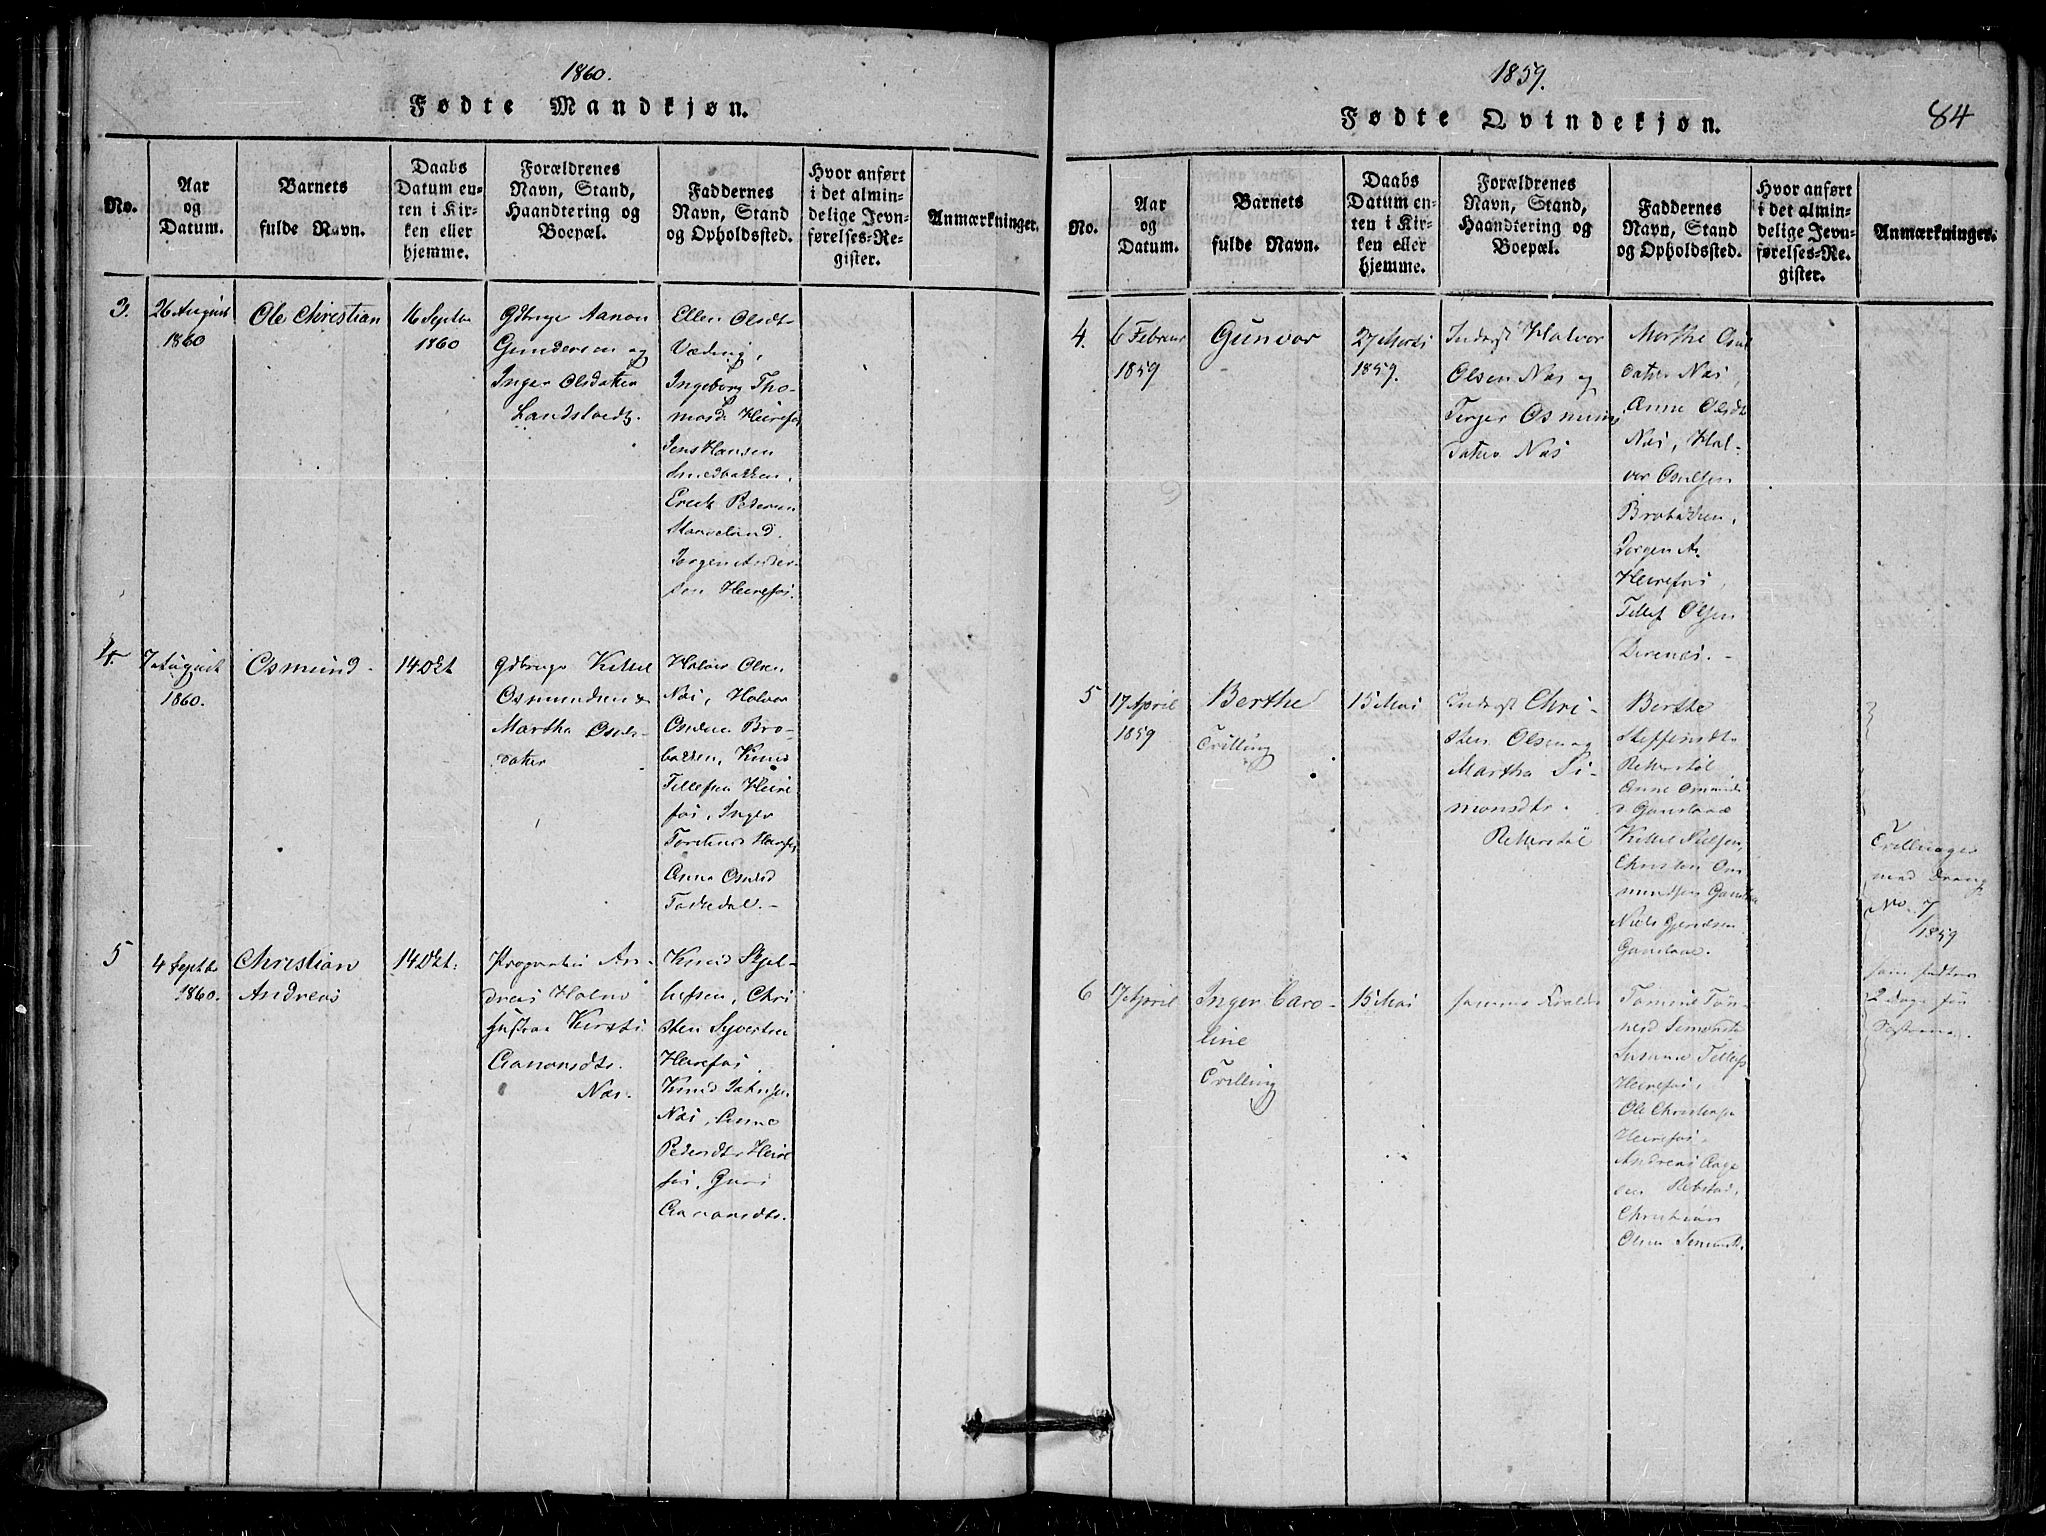 1860.
Fødte Mandkjøn.
No.
Aar
og
Datum.
Barnets
fulde Navn.
Daabs
Datum en-
ten i Kir-
ken eller
hjemme.
Forældrenes
Navn, Stand,
Haandtering og
Boepæl.
Faddernes
Navn, Stand
og Opholdssted.
Hvor anført
i det almin-
delige Jevn-
førelses-Re-
gister.
Anmærkninger.
3.
26 August
1860
Ole Christian
16 Septbr
1860
Gdbruger Aanon
Gundersen og
Inger Olsdatter
Landstvedt.
Ellen Olsdtr
Væding,
Ingeborg Tho-
masd. Heirefos
Jens Hansen
Smedbakken,
Erick Pedersen
Mørseland
Jørgen Ander-
sen Heirefos.
4.
7 August
1860.
Osmund
14 Okt
Gdbruger Kittel
Osmundsen &
Martha Osuls-
datter
Halvor Olsen
Nas, Halvor
Osulsen Bro-
bakken, Knud
Tellefsen Heire-
fos, Inger
Heirefos
Anne Osulsd
5
4 Septbr
1860.
Christian
Andreas
14 Okt.
An-
dreas Holm
Hustrue Kirsti
Aanonsdtr.
Nas.
Knud Kjel-
lefsen, Chri
sten Syvertsen
Heirefos,
Knud
Nas, Anne
Pedersdtr Heire
fos, Guri
Aanonsdtr.
1859.
84
Fødte Qvindekjøn.
No.
Aar
og
Datum.
Barnets
fulde Navn.
Daabs
Datum en-
ten i Kir-
ken eller
hjemme.
Forældrenes
Navn, Stand,
Haandtering og
Boepæl.
Faddernes
Navn, Stand
og Opholdssted.
Hvor anført
i det almin-
delige Jevn-
førelses-Re-
gister.
Anmærkninger.
4.
6 Februar
1859
Gunvor
27 Marts
1859.
Inderst Halvor
Olsen Nas og
Terjer Osmuns
datter Nas
Marthe Osul
datter Nas,
Anne Olsdtr
Nas, Hal-
vor Osulsen
Brobakken,
Jørgen A.
Heirefos,
Tellef Olsen
5
17 April
1859
Berthe
Trilling
15 Mai
Inderst Chri-
sten Olsen og
Martha Si-
monsdtr.
Retterstøl
Berthe
Steffensdtr
Retterstøl
Anne Osmunds
d Ganslaae
Kittel Nielsen,
Christen Os-
mundsen
Niels Gjerulsen
Ganslaae.
Trillinger
med Dreng
No. 7/1859
som fødtes
2 Dage før
Søstrene.
6
17 April
Inger Caro-
line
Trilling
15 Mai
samme Forældre
Tomine Tøn-
nesd Simonstø
Susanne Tellefs
Heirefos,
Ole Christensen
Heirefos,
Andreas Aage
sen Retstøl,
Christian
Olsen Simonst.